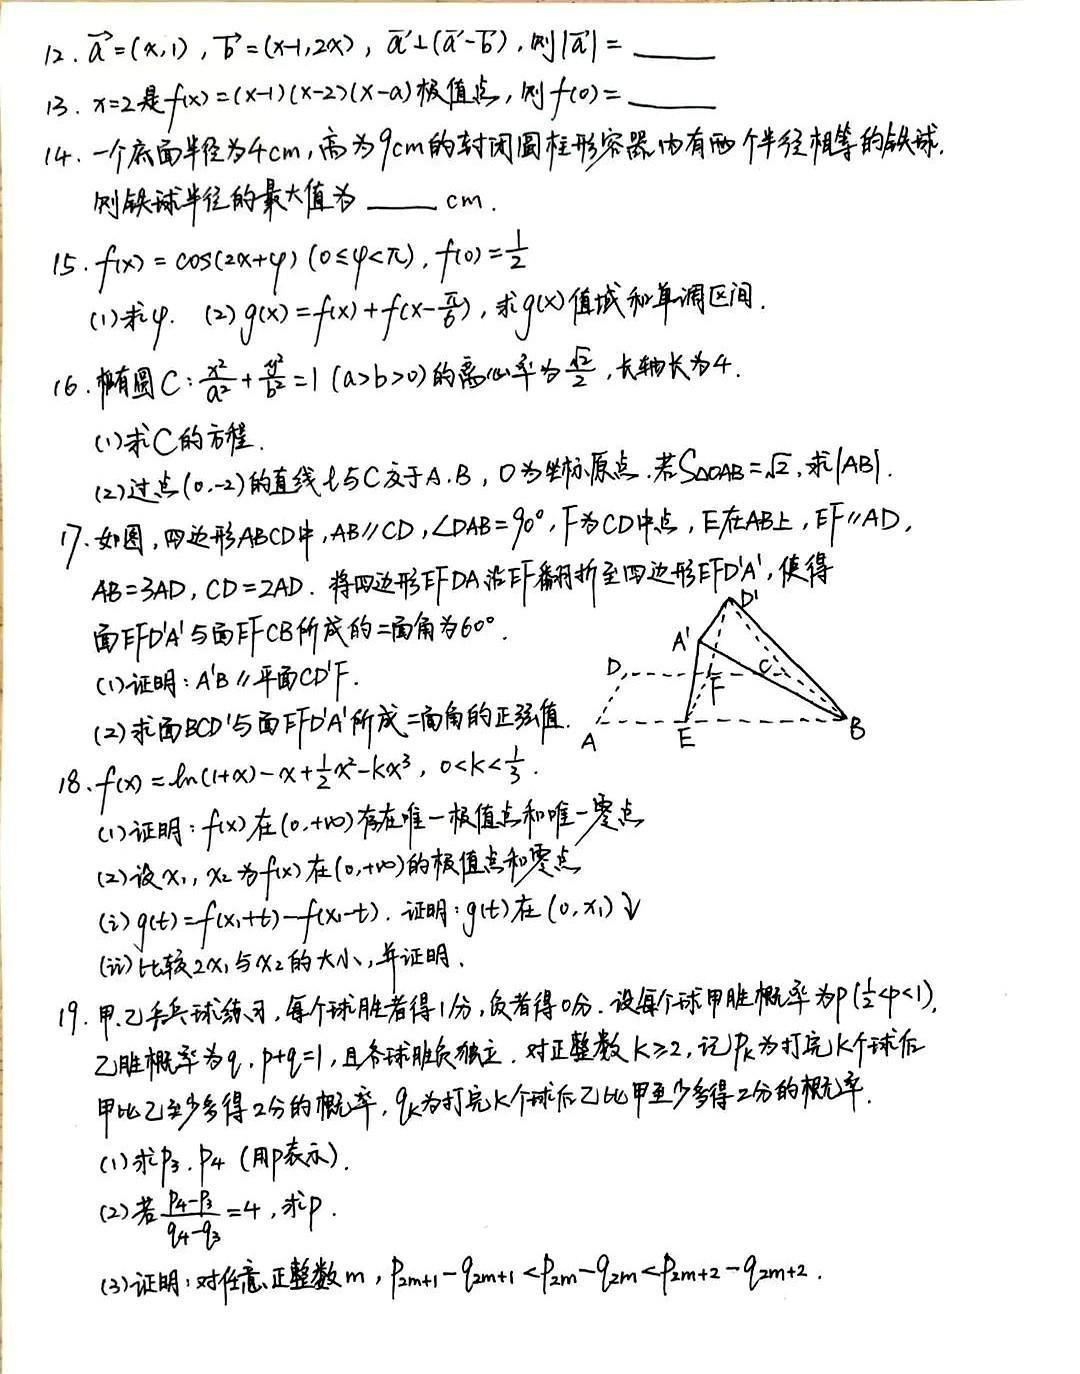 12. a⃗=(x,1), b⃗=(x-1,2x), a⃗⊥(a⃗-b⃗), 则|a⃗|= ____
13. x=2是f(x)=(x-1)(x-2)(x-a)极值点, 则f(0)= ____
14. 一个底面半径为4cm, 高为9cm的封闭圆柱形容器内有两个半径相等的铁球,
则铁球半径的最大值为 ____ cm.
15. f(x)=cos(2x+φ) (0≤φ<π), f(0)=1/2
(1)求φ. (2)g(x)=f(x)+f(x-π/6), 求g(x)值域和单调区间.
16. 椭圆C: x²/a²+y²/b²=1 (a>b>0)的离心率为√2/2, 长轴长为4.
(1)求C的方程.
(2)过点(0,-2)的直线l与C交于A.B, O为坐标原点. 若S△OAB=√2, 求|AB|.
17. 如图, 四边形ABCD中, AB∥CD, ∠DAB=90°, F为CD中点, E在AB上, EF∥AD,
AB=3AD, CD=2AD. 将四边形EFDA沿EF翻折至四边形EFD'A', 使得
面EFD'A'与面EFCB所成的二面角为60°.
(1)证明: A'B∥平面CD'F.
(2)求面BCD'与面EFD'A'所成二面角的正弦值.
D'
A'
D
F
C
A
E
B
18. f(x)=ln(1+x)-x+1/2x²-kx³, 0<k<1/3.
(1)证明: f(x)在(0,+∞)存在唯一极值点和唯一零点
(2)设x₁, x₂为f(x)在(0,+∞)的极值点和零点
(i)g(t)=f(x₁+t)-f(x₁-t). 证明: g(t)在(0,x₁)↓
(ii)比较2x₁与x₂的大小, 并证明.
19. 甲.乙乒乓球练习, 每个球胜者得1分, 负者得0分. 设每个球甲胜概率为p(1/2<p<1),
乙胜概率为q, p+q=1, 且各球胜负独立. 对正整数k≥2, 记pₖ为打完k个球后
甲比乙至少多得2分的概率, qₖ为打完k个球后乙比甲至少多得2分的概率.
(1)求p₃.p₄ (用p表示).
(2)若(p₄-p₃)/(q₄-q₃)=4, 求p.
(3)证明: 对任意正整数m, p₂ₘ₊₁-q₂ₘ₊₁<p₂ₘ-q₂ₘ<p₂ₘ₊₂-q₂ₘ₊₂.